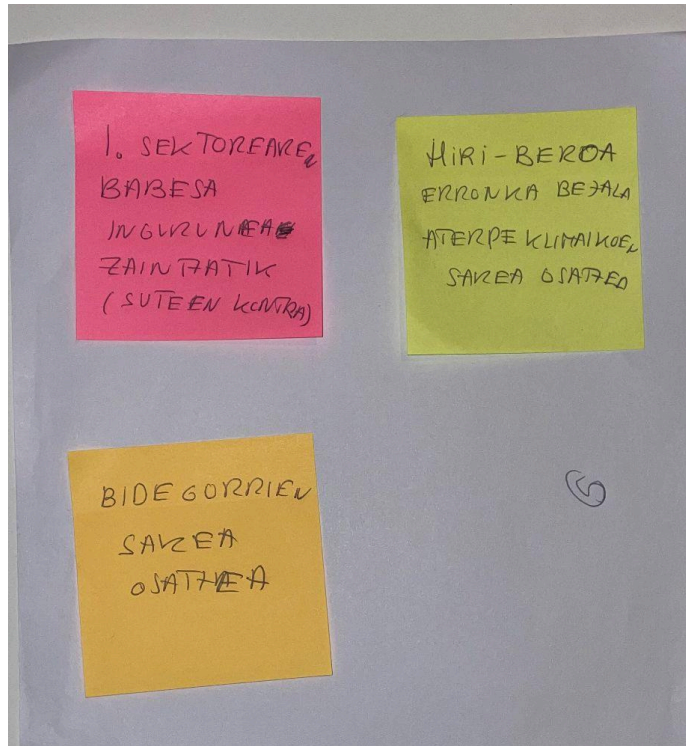 1. SEKTOREAREN
BABESA
INGURUNEA
ZAINTZATIK
(SUTEEN KONTRA)
HIRI-BEROA
ERRONKA BEZALA
ATERPE KLIMAIKOEN
SAREA OSATZEA
BIDEGORRIEN
SAREA
OSATZEA
5